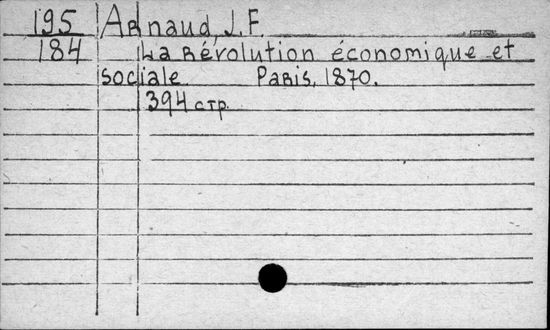 195 Arnaud, J. F.
184 La Révolution économique et
sociale Paris, 1870.
394 стр.